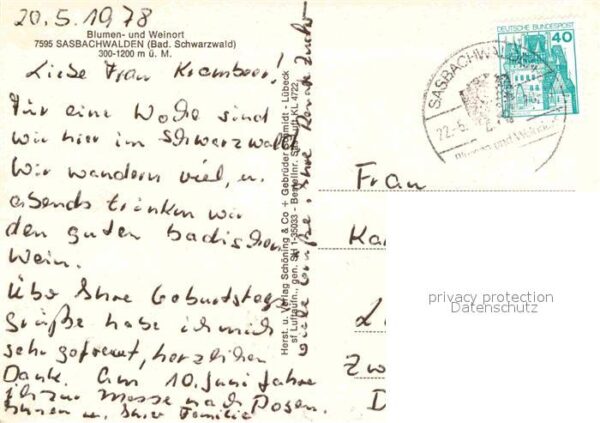 20.5.1978
Blumen- und Weinort
7595 SASBACHWALDEN (Bad. Schwarzwald)
300-1200 m ü. M.
Liebe Frau
Für eine Woche sind
wir hier im Schwarzwald
Wir wandern viel, u.
abends trinken wir
den guten badischen
Wein.
Über Ihre Geburtstags
Grüße habe ich mich
sehr gefreut, herzlichen
Dank. Am 10. Juni fahre
ich zur Messe nach Posen.
Ihnen u. Ihrer Familie
viele Grüße, Ihre Renate
Herst. u. Verlag Schöning & Co + Gebrüder Schmidt - Lübeck
sf Luftaufn., gen. SH 1-35033 - Bestellnr. Sasb. Luft. KL 4722
DEUTSCHE BUNDESPOST
40
SASBACHWALDEN
22.-5.
Blumen und
Frau
Ka
L
Zw
D
privacy protection
Datenschutz